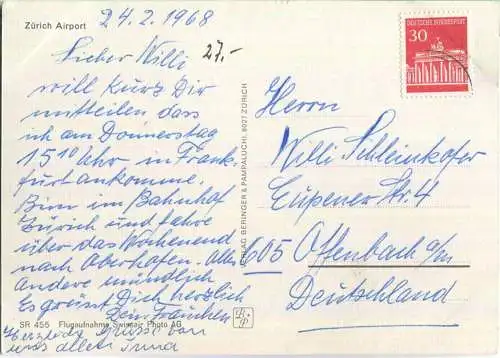 Zürich Airport
24.2.1968
Lieber Willi
27.-
will kurz Dir
mitteilen dass
ich am Donnerstag
15 10 Uhr in Frank-
furt ankomme.
Bin im Bahnhof
Zürich und fahre
über das Wochenend
nach Oberhofen. Alles
Andere mündlich
Es grüsst Dich herzlich
Dein Fränken
SR 455 Flugaufnahme Swissair Photo AG
Herzliche Grüsse von
uns allen Irma
VERLAG BERINGER & PAMPALUCHI, 8027 ZÜRICH
DEUTSCHE BUNDESPOST
30
Herrn
Willi Schleinkofer
Eupener Str. 4
605 Offenbach a/m
Deutschland